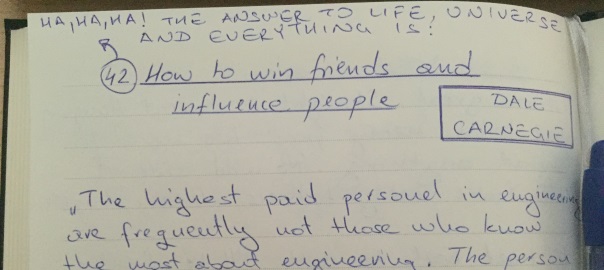 HA, HA, HA! THE ANSWER TO LIFE, UNIVERSE
AND EVERYTHING IS:
42 How to win friends and
influence people
DALE
CARNEGIE
„The highest paid personel in engineering
are frequently not those who know
the most about engineering. The person